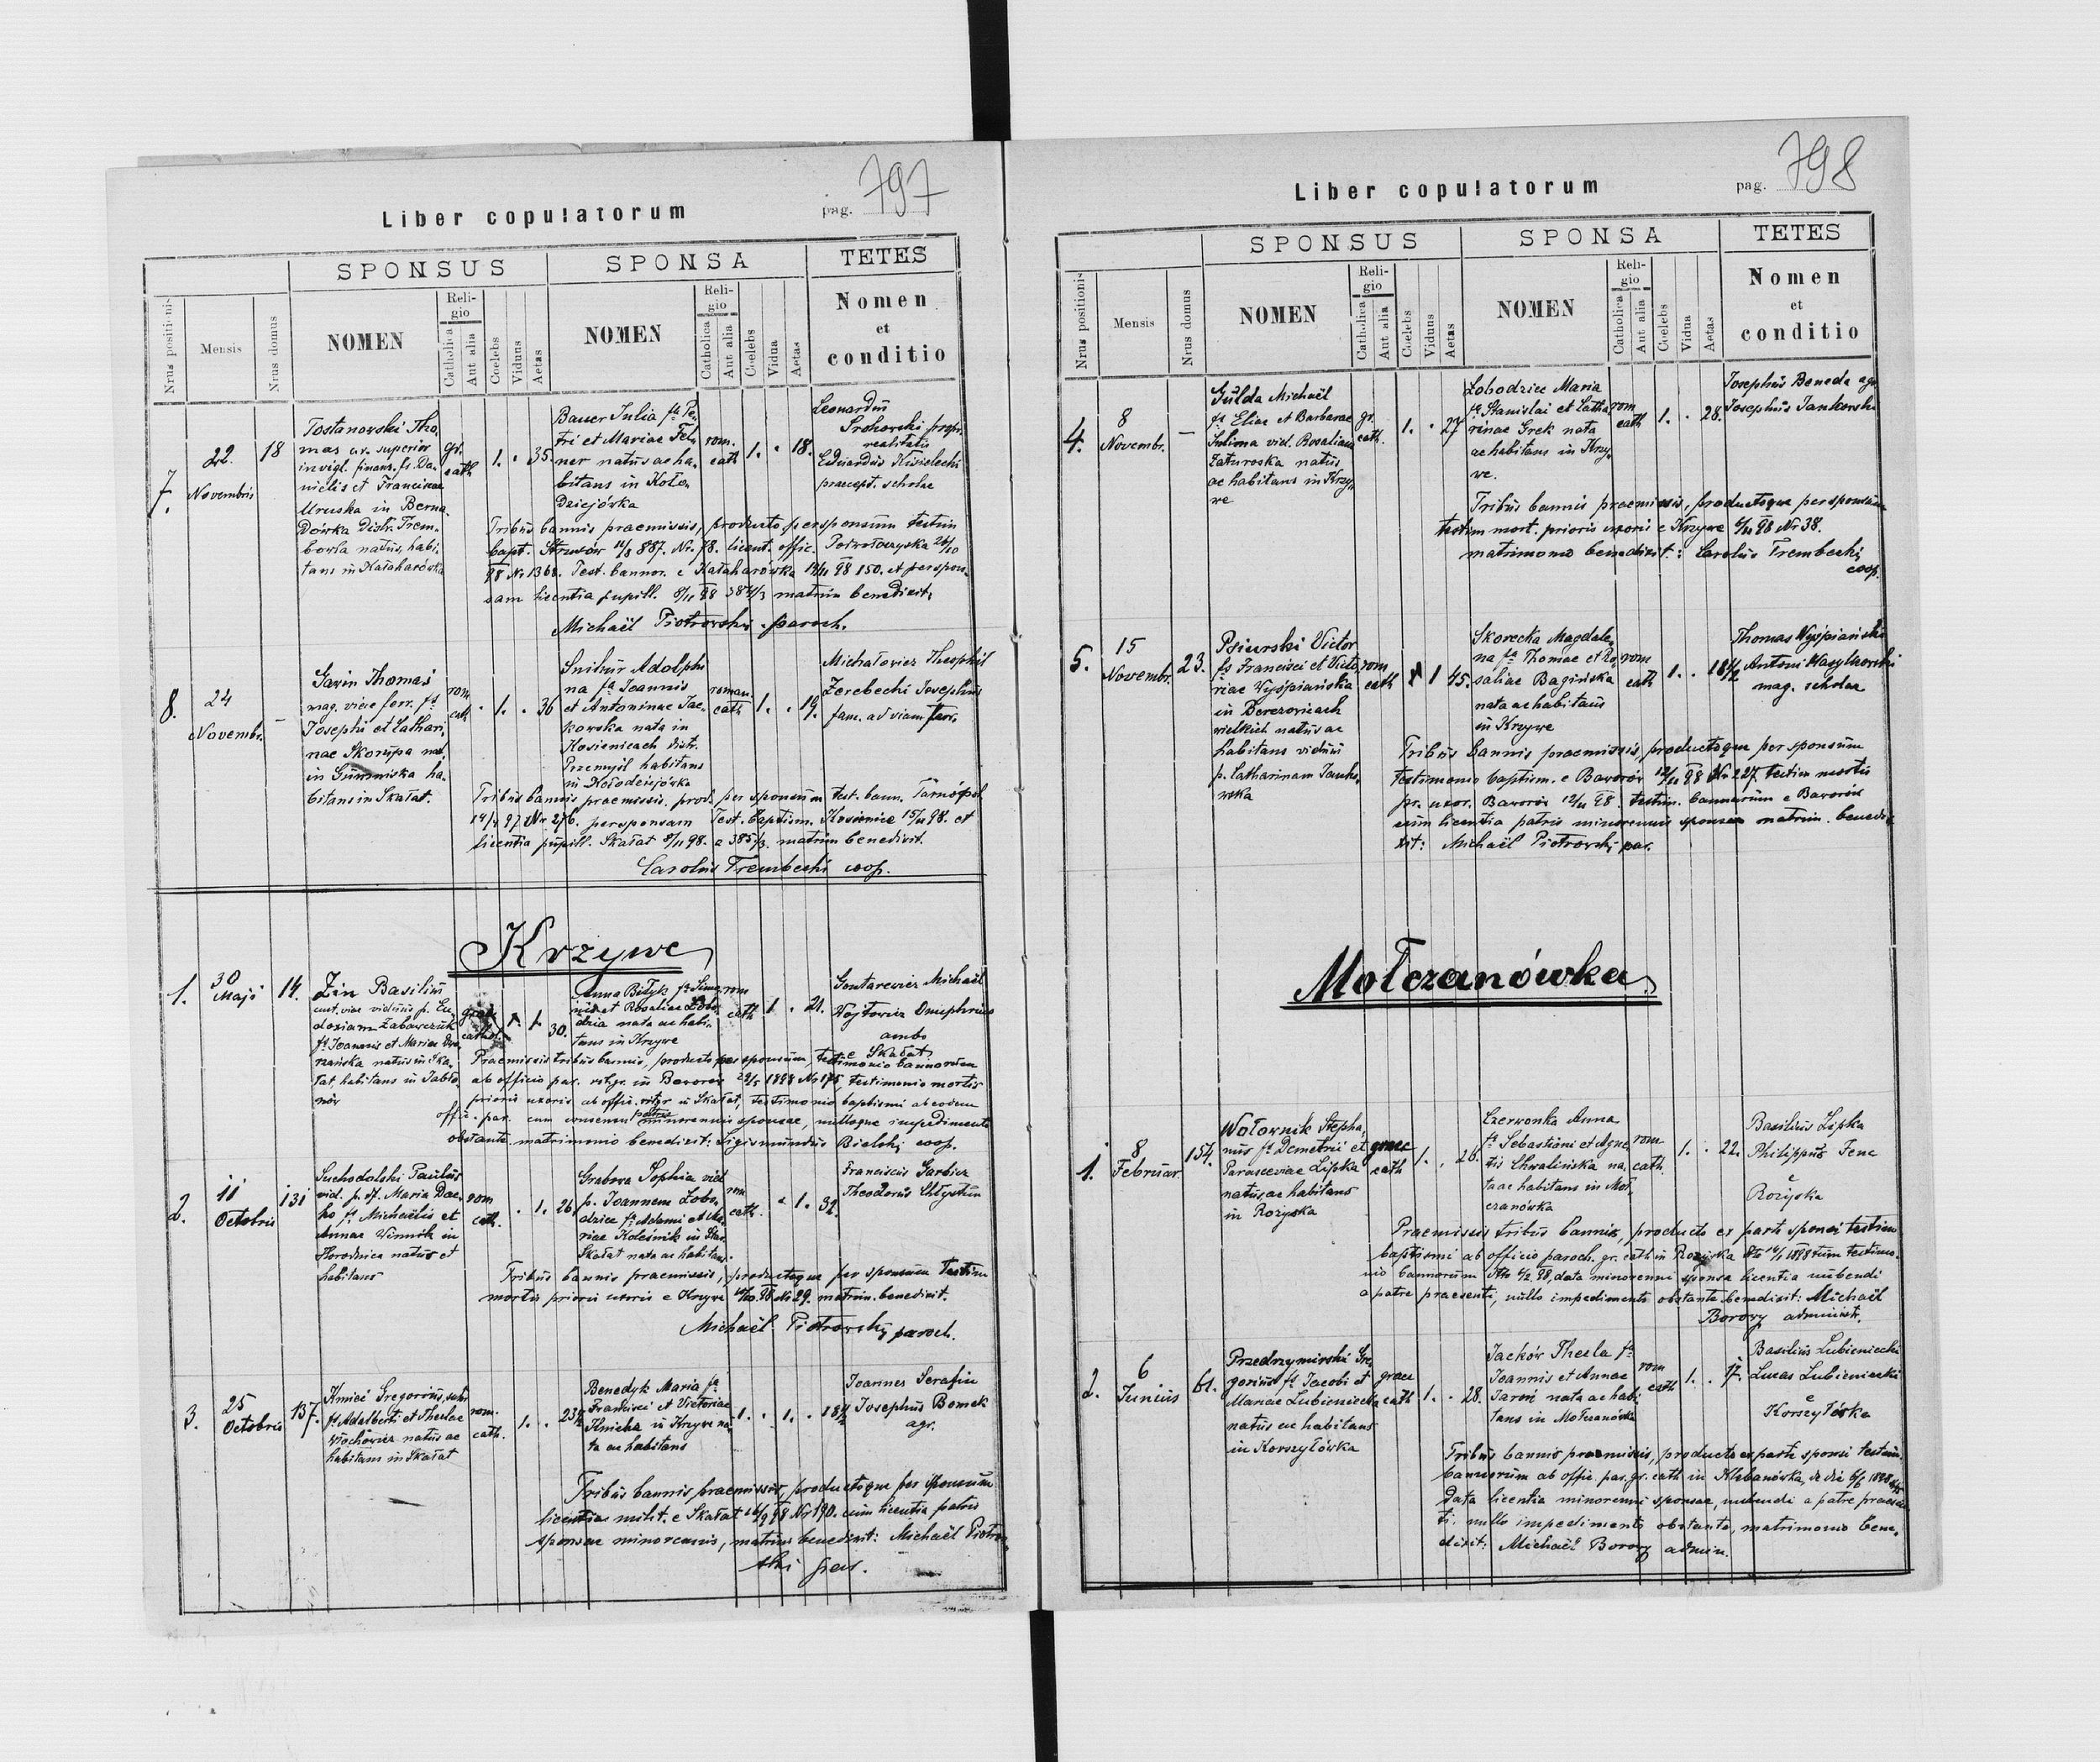 Liber copulatorum
pag. 797
SPONSUS
SPONSA
TETES
Nrus positionis
Mensis
Nrus domus
NOMEN
Religio
Catholica
Aut alia
Coelebs
Viduus
Aetas
NOMEN
Religio
Catholica
Aut alia
Coelebs
Vidua
Aetas
Nomen
et
conditio
7.
22
Novembris
18
Tostanowski Tho-
mas ar. superior
invigl. finans. fs. Da-
nielis et Franciscae
Uruska in Berna-
dówka distr. Trem-
bowla natus, habi-
tans in Kałaharówka
gr.
cath
1. . 35.
Bauer Julia fa Pe-
tri et Mariae Fel-
ner natus ac ha-
bitans in Koło-
dziejówka
rom.
cath
1. . 18.
Leonardus
realitatis
Eduardus Kisielecki
praecept. scholae
Tribus bannis praemissis, producto per sponsum testim
bapt. Strusów 887. Nr. 78. licent. offic. Podwołoczyska 26/10
98 Nr 1368. Test. bannor. e Kałaharówka 98 150. et per spon-
sam licentia pupill. matrim benedixit,
Michaël Piotrowski paroch.
8.
24
Novembr.
–
Gawin Thomas
mag. viae ferr. fs
Josephi et Cathari-
nae Skorupa nat.
in Gumniska ha-
bitans in Skałat.
rom
cath
. 1. . 36
Snihur Adolphi
na fa Joannis
et Antoninae Jac-
kowska nata in
Kosienicach distr.
Przemyśl habitans
in Kołodziejówka
roman.
cath
1. . 19.
Michałowicz Theophil
Zerebecki Josephus
fam. ad viam ferr.
Tribus bannis praemissis. prod. per sponsum test. bann. Tarnopol
97 Nr 276. per sponsam test. baptism. Kosienice 15/11 98. et
licentia pupill. Skałat 8/11 98. matrim benedixit.
Carolus Trembecki coop.
Krzywe
1.
30
Maji
14.
Zin Basilius
viduus p. Eu-
doxiam Zabawczuk
fs Joannis et Mariae
natus in Ska-
łat, habitans in Jabło-
nów
graec
cathol.
1. 30.
Anna Biłyk fa Sime-
nis et Rosaliae Łobo-
dzia nata ac habi-
tans in Krzywe
rom
cath
1 . 21.
Gontarewicz Michaël
Wójtowicz Onuphrius
ambo
e Skałat
Praemissis tribus bannis, producto per sponsum, testimonio bannorum
ab officio par. rit. gr. in Boworów 1898 Nr 175, testimonio mortis
prioris uxoris ab offic. rit. gr in Skałat, testimonio baptismi ab eodem
offic. par. cum consensu patris minorennis sponsae, nulloque impedimento
obstante matrimonio benedixit: Sigismundus Bielski coop.
2.
11
Octobris
131
Suchodolski Paulus
vid. p. df. Maria Dac-
ko fs Michaëlis et
Annae Winnik in
Horodnica natus et
habitans
rom
cath.
. 1. 26
Grabowa Sophia vid
p. Joannem Łobo-
dzice fa Adami et Ma-
riae Koleśnik in Star.
Skałat nata ac habitans.
rom
cath.
. 1. 32.
Franciscus Garbicz
Theodorus Chłystun
Tribus bannis praemissis, productoque per sponsum testim
mortis prioris uxoris e Krzywe 98 Nr 29. matrim. benedixit.
Michaël Piotrowski paroch.
3.
25
Octobris
137.
Kmieć Gregorius,
fs Adalberti et Theclae
Włochowicz natus ac
habitans in Skałat
rom.
cath.
1. . 23½
Benedyk Maria fa
Francisci et Victoriae
Kmicha in Krzywe na-
ta ac habitans
1. . 1. . 18½
Joannes Serafin
Josephus Bomek
agr.
Tribus bannis praemissis, productoque per sponsum
licentia milit. e Skałat 98 Nr 190. cum licentia patris
sponsae minorennis, matrim benedixit: Michaël Piotrow-
ski par.
Liber copulatorum
pag. 798
SPONSUS
SPONSA
TETES
Nrus positionis
Mensis
Nrus domus
NOMEN
Religio
Catholica
Aut alia
Coelebs
Viduus
Aetas
NOMEN
Religio
Catholica
Aut alia
Coelebs
Vidua
Aetas
Nomen
et
conditio
4.
8
Novembr.
–
Gulda Michaël
fs Eliae et Barbarae
Sulima vid. Rosaliam
Zaturoska natus
ac habitans in Krzy-
we
gr.
cath.
1. . 27
Łobodziec Maria
fa Stanislai et Catha-
rinae Grek nata
ac habitans in Krzy-
we.
rom
cath
1. . 28.
Josephus Beneda agr
Josephus Jankowski
Tribus bannis praemissis, productoque per sponsum
testim mort. prioris uxoris e Krzywe 98 Nr 38.
matrimonio benedixit: Carolus Trembecki
coop.
5.
15
Novembr.
23.
Psiurski Victor
fs Francisci et Victo-
riae Wyspiańska
in Berezowicach
wielkich natus ac
habitans viduus
p. Catharinam Janko-
wska
rom
cath
1 45.
Skorecka Magdale-
na fa Thomae et Ro-
saliae Bagińska
nata ac habitans
in Krzywe
rom
cath
1. . 18½
Thomas Wyspiański
Antoni Wasylkowski
mag. scholae
Tribus bannis praemissis, productoque per sponsum
testimonio baptism. e Baworów 98 Nr 227. testim mortis
pr. uxor. Baworów 12/11 98. testim. bannorum e Baworów
cum licentia patris minorennis sponsae matrim. benedi-
xit: Michaël Piotrowski par.
Mołczanówka
1.
8
Februar.
154.
Wołownik Stepha-
nus fs Demetrii et
Parasceviae Lipka
natus, ac habitans
in Rożyska
graec
cath
1. . 26.
Czerwonka Anna
fa Sebastiani et Agne-
tis Chwalińska na-
ta ac habitans in Moł-
czanówka
rom
cath.
1. . 22.
Basilius Lipka
Philippus Fenc
e
Rożyska
Praemissis tribus bannis, producto ex parte sponsi testim
baptismi ab officio paroch. gr. cath in Rożyska dto 1898 tum testimo-
nio bannorum dto 6/2 98, data minorenni sponsa licentia nubendi
a patre praesenti, nullo impedimento obstante benedixit: Michaël
Borowy administ.
2.
6
Junius
61.
Przedrzymirski Gre-
gorius fs Jacobi et
Mariae Lubieniecka
natus ac habitans
in Korszyłówka
graec
cath
1. . 28.
Jacków Thecla fa
Joannis et Annae
Jaroń nata ac habi-
tans in Mołczanówka
rom
cath
1. . 17.
Basilius Lubieniecki
Lucas Lubieniecki
e
Korszyłówka
Tribus bannis praemissis, producto ex parte sponsi testim.
bannorum ab offic. par. gr. cath in Klebanówka de die 6/6 1898
data licentia minorenni sponsae, nubendi a patre praesen-
ti, nullo impedimento obstante, matrimonio bene-
dixit: Michaël Borowy admin.